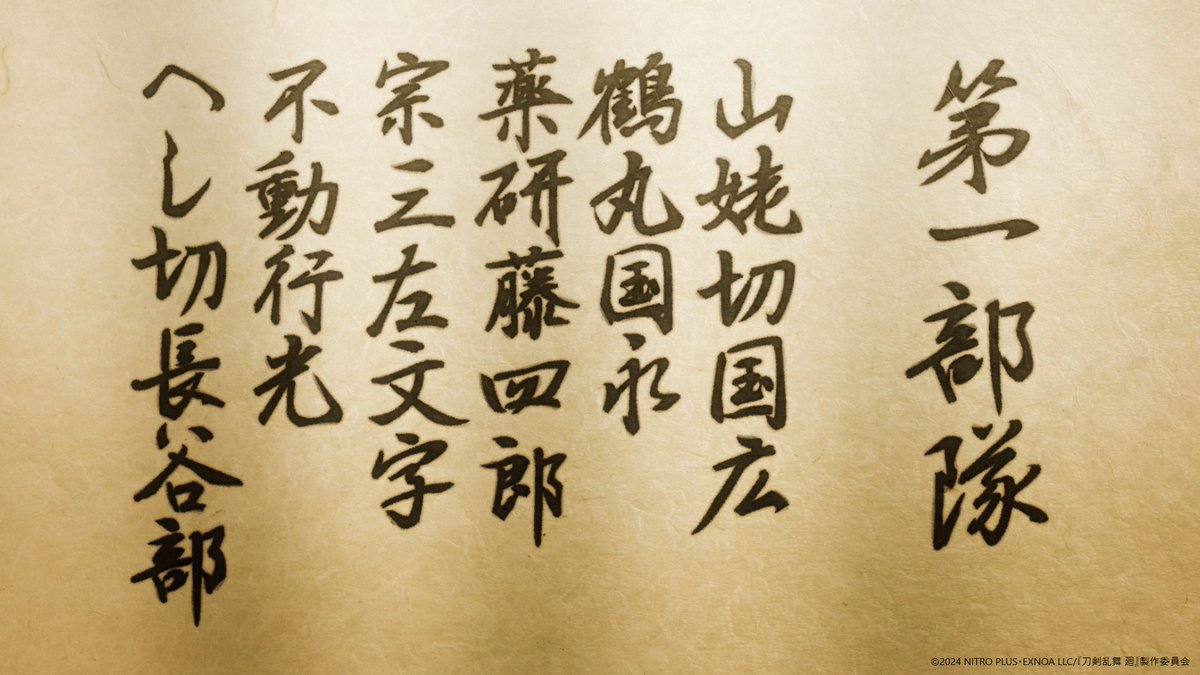 第一部隊
山姥切国広
鶴丸国永
薬研藤四郎
宗三左文字
不動行光
へし切長谷部
©2024 NITRO PLUS・EXNOA LLC/『刀剣乱舞 廻』製作委員会